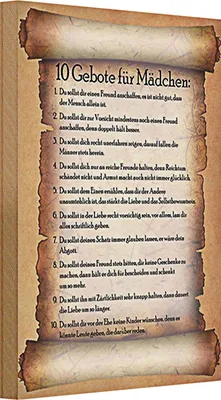 10 Gebote für Mädchen:
1. Du sollst dir einen Freund anschaffen, es ist nicht gut, dass
der Mensch allein ist.
2. Du sollst dir zur Vorsicht mindestens noch einen Freund
anschaffen, denn doppelt hält besser.
3. Du sollst dich recht unerfahren zeigen, darauf fallen die
Männer stets herein.
4. Du sollst dich nur an reiche Freunde halten, denn Reichtum
schändet nicht und Armut macht auch nicht immer glücklich.
5. Du sollst dem Einen erzählen, dass dir der Andere
unausstehlich ist, das stärkt die Liebe und das Selbstbewusstsein.
6. Du sollst in der Liebe recht vorsichtig sein, vor allem, lass dir
alles schriftlich geben.
7. Du sollst deinen Schatz immer glauben lassen, er wäre dein
Abgott.
8. Du sollst deinen Freund stets bitten, dir keine Geschenke zu
machen, dann hält er dich für bescheiden und schenkt
um so mehr.
9. Du sollst ihn mit Zärtlichkeit sehr knapp halten, dann dauert
die Liebe um so länger.
10. Du sollst dir vor der Ehe keine Kinder wünschen, denn es
könnte Leute geben, die darüber reden.